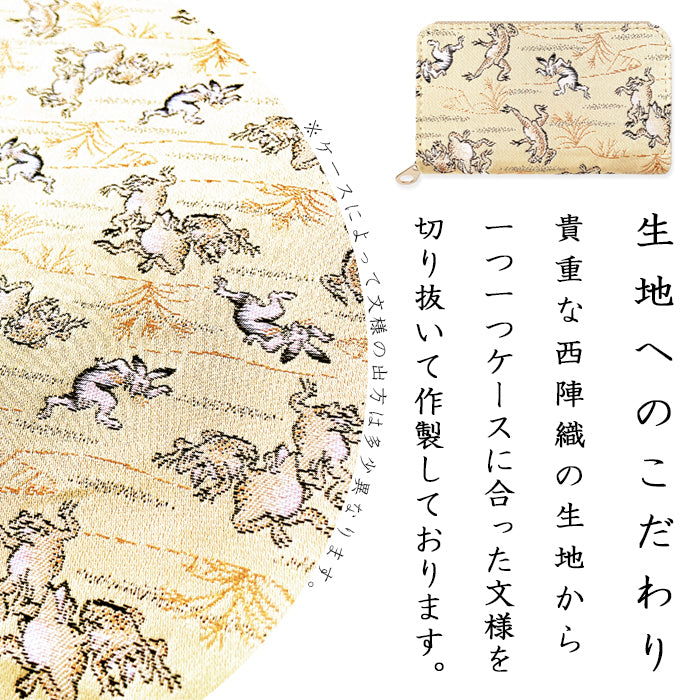 生地へのこだわり
貴重な西陣織の生地から
一つ一つケースに合った文様を
切り抜いて作製しております。
※ケースによって文様の出方は多少異なります。